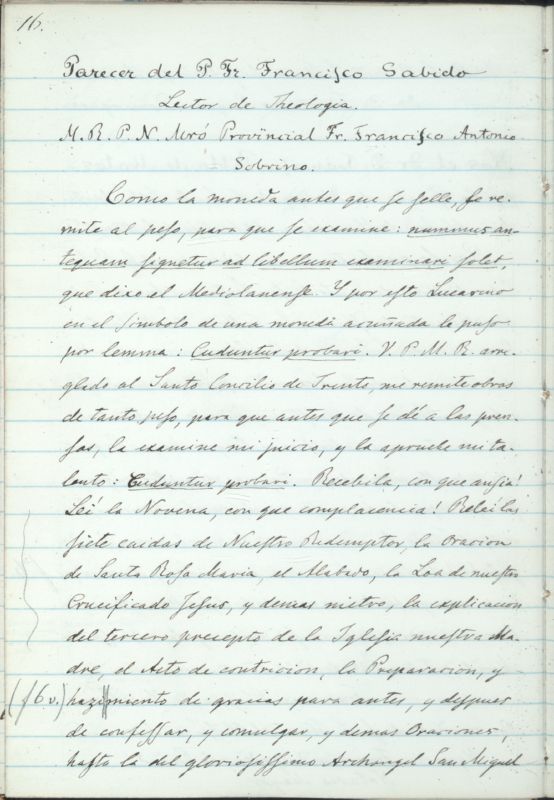 16.
Parecer del P. Fr. Franciſco Sabido
Lector de Theologia.
M. R. P. N. Mrõ Provincial Fr. Franciſco Antonio
Sobrino.
Como la moneda antes que ſe ſelle, ſe re-
mite al peſo, para que ſe examine: nummus an-
tequam ſignetur ad libellum examinari ſolet,
que dixo el Mediolanenſe. Y por eſto Lucarino
en el ſimbolo de una moneda acuñada le puſo
por lemma: Cuduntur probari. V. P. M. R. arre-
glado al Santo Concilio de Trento, me remite obras
de tanto peſo, para que antes que ſe dé a las pren-
ſas, la examine mi juicio, y la apruebe mi ta-
lento: Cuduntur probari. Recebila, con que anſia!
Leì la Novena, con que complacencia! Releì las
ſiete caidas de Nueſtro Redemptor, la Oracion
de Santa Roſa Maria, el Alabado, la Loa de nueſtro
Crucificado Jeſus, y demas metros, la explicacion
del tercero precepto de la Igleſia nueſtra Ma-
dre, el Acto de contricion, la Preparacion, y
(f 6 v.) hazimiento de gracias para antes, y deſpues
de confeſſar, y comulgar, y demas Oraciones,
haſta la del glorioſiſſimo Archangel San Miguel